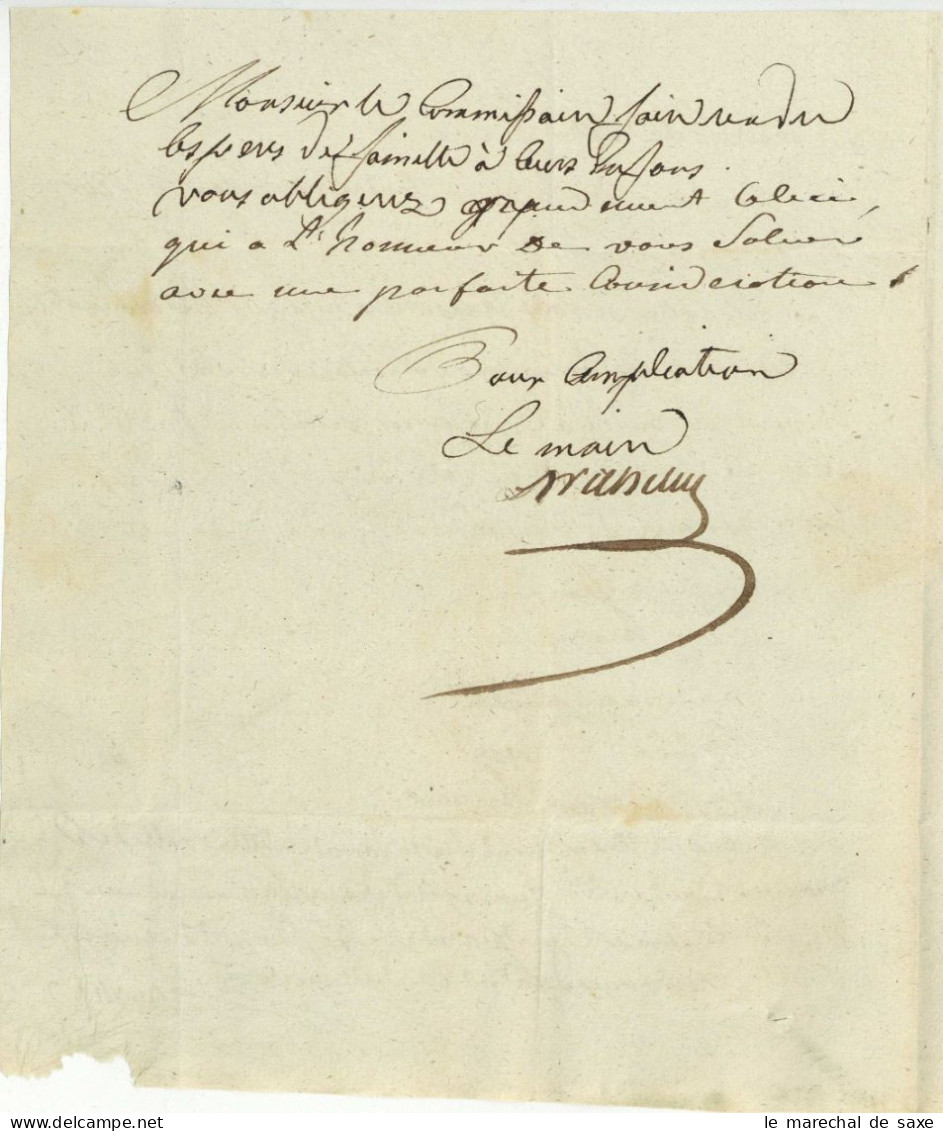 Monsieur le Commissaire faire rendre
les peres de famille à leurs Enfans.
vous obligerez grandement Celui
qui a L'honneur de vous Saluer
avec une parfaite Consideration
Pour Ampliation
Le maire
le marechal de saxe